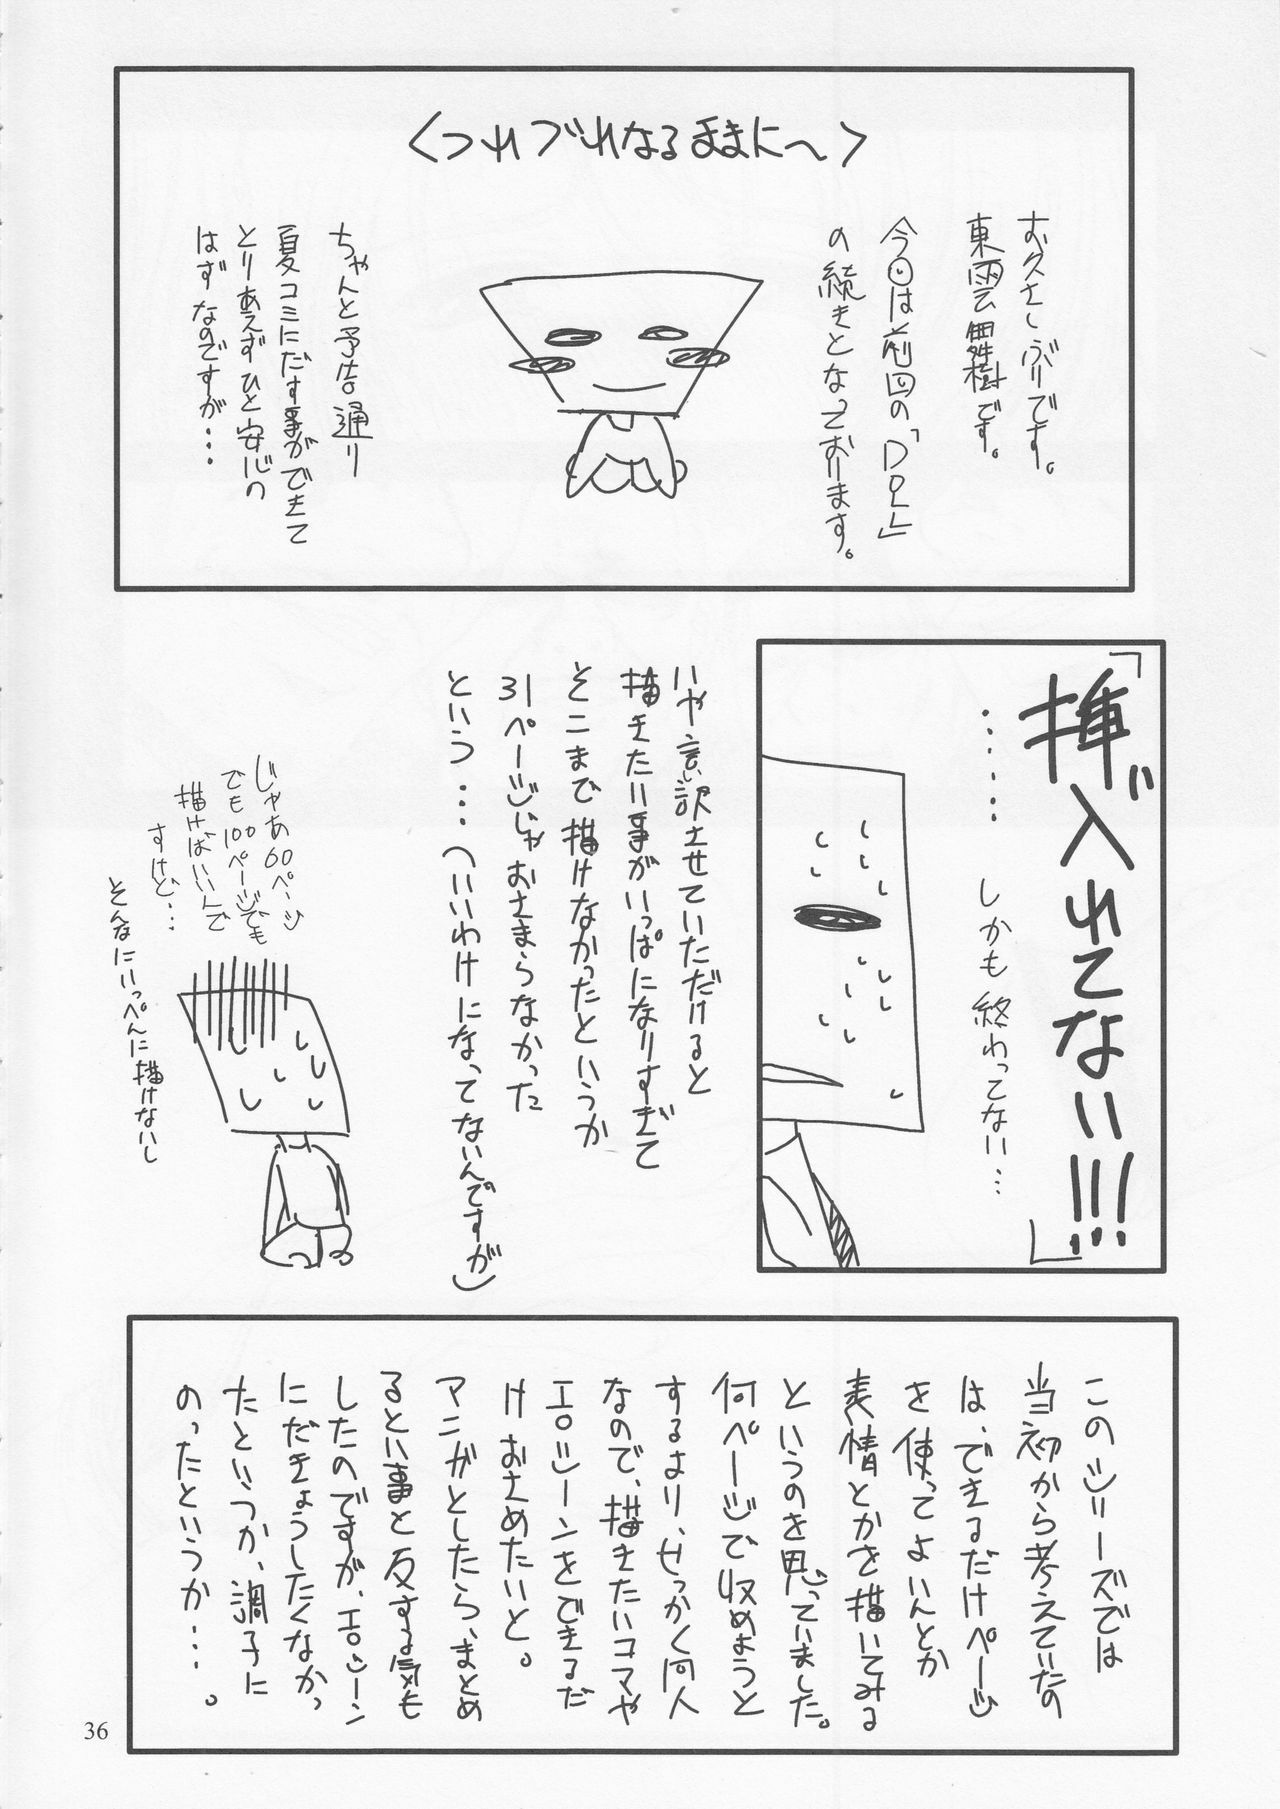 ＜つれづれなるままに～＞
お久しぶりです。
東雲舞樹です。
今回は前回の「DOL」
の続きとなっております。
ちゃんと予告通り
夏コミにだす事ができて
とりあえずひと安心の
はずなのですが…
「挿入れてない!!!」
……しかも終わってない…
いや言い訳させていただけると
描きたい事がいっぱになりすぎて
そこまで描けなかったというか
31ページじゃおさまらなかった
という…(いいわけになってないんですが)
じゃあ60ページ
でも100ページでも
描けばいいんで
すけど…
そんなにいっぺんに描けないし
このシリーズでは
当初から考えていたの
は、できるだけページ
を使ってよいんとか
表情とかを描いてみる
というのを思っていました。
何ページで収めようと
するより、せっかく同人
なので、描きたいコマや
エロシーンをできるだ
けおさめたいと。
マンガとしたら、まとめ
ると言い事と反する気も
したのですが、エロシーン
にだきょうしたくなか
ったというか、調子に
のったというか…。
36